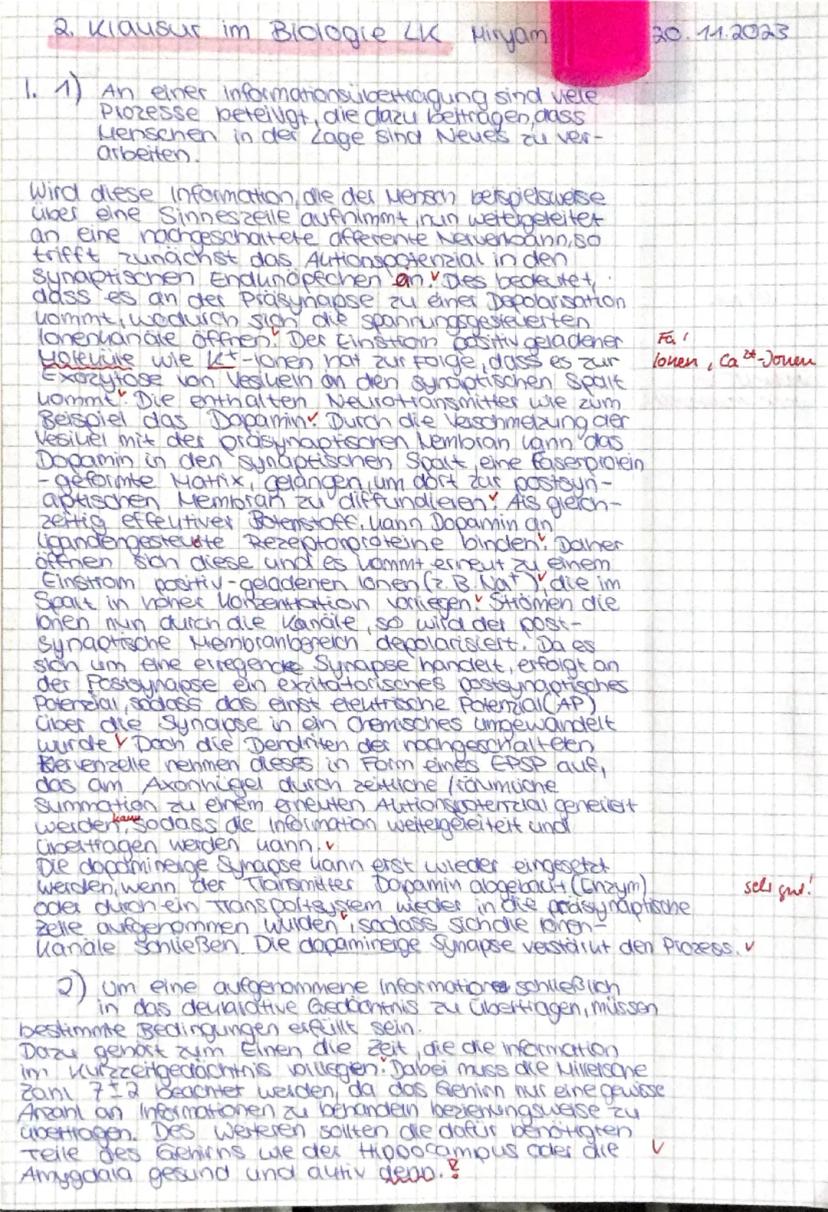 2. Klausur im Biologie LK Miryam 20.11.2023
1. 1) An einer Informationsübertragung sind viele
Prozesse beteiligt, die dazu beitragen, dass
Menschen in der Lage sind Neues zu ver-
arbeiten.
Wird diese Information, die der Mensch beispielsweise
über eine Sinneszelle aufnimmt, nun weitergeleitet
an eine nachgeschaltete afferente Nervenbahn, so
trifft zunächst das Aktionspotenzial in den
synaptischen Endknöpfchen an. Dies bedeutet,
dass es an der Präsynapse zu einer Depolarisation
kommt, wodurch sich die spannungsgesteuerten
Ionenkanäle öffnen. Der Einstrom positiv geladener
Fa!
Moleküle wie K+-Ionen hat zur Folge, dass es zur
Ionen, Ca2+-Ionen
Exozytose von Vesikeln an den synaptischen Spalt
kommt. Die enthalten Neurotransmitter wie zum
Beispiel das Dopamin. Durch die Verschmelzung der
Vesikel mit der präsynaptischen Membran kann das
Dopamin in den synaptischen Spalt, eine Faserprotein
-geformte Matrix, gelangen, um dort zur postsyn-
aptischen Membran zu diffundieren. Als gleich-
zeitig effektiver Botenstoff, kann Dopamin an
ligandengesteuerte Rezeptorproteine binden. Daher
öffnen sich diese und es kommt erneut zu einem
Einstrom positiv-geladenen Ionen (z.B. Na+), die im
Spalt in hoher Konzentration vorliegen. Strömen die
Ionen nun durch die Kanäle, so wird der post-
synaptische Membranbereich depolarisiert. Da es
sich um eine erregende Synapse handelt, erfolgt an
der Postsynapse ein exzitatorisches postsynaptisches
Potenzial, sodass das einst elektrische Potenzial (AP)
über die Synapse in ein chemisches umgewandelt
wurde. Doch die Dendriten der nachgeschalteten
Nervenzelle nehmen dieses in Form eines EPSP auf,
das am Axonhügel durch zeitliche / räumliche
Summation zu einem erneuten Aktionspotenzial generiert
werden kann, sodass die Information weitergeleitet und
übertragen werden kann.
Die dopaminerge Synapse kann erst wieder eingesetzt
werden, wenn der Transmitter Dopamin abgebaut (Enzym)
sehr gut!
oder durch ein Transportsystem wieder in die präsynaptische
Zelle aufgenommen wurden, sodass sich die Ionen-
kanäle schließen. Die dopaminerge Synapse verstärkt den Prozess.
2) Um eine aufgenommene Information schließlich
in das deklarative Gedächtnis zu übertragen, müssen
bestimmte Bedingungen erfüllt sein.
Dazu gehört zum Einen die Zeit, die die Information
im Kurzzeitgedächtnis vorliegen. Dabei muss die Millersche
Zahl 7±2 beachtet werden, da das Gehirn nur eine gewisse
Anzahl an Informationen zu behandeln beziehungsweise zu
übertragen. Des Weiteren sollten die dafür benötigten
Teile des Gehirns wie der Hippocampus oder die
Amygdala gesund und aktiv